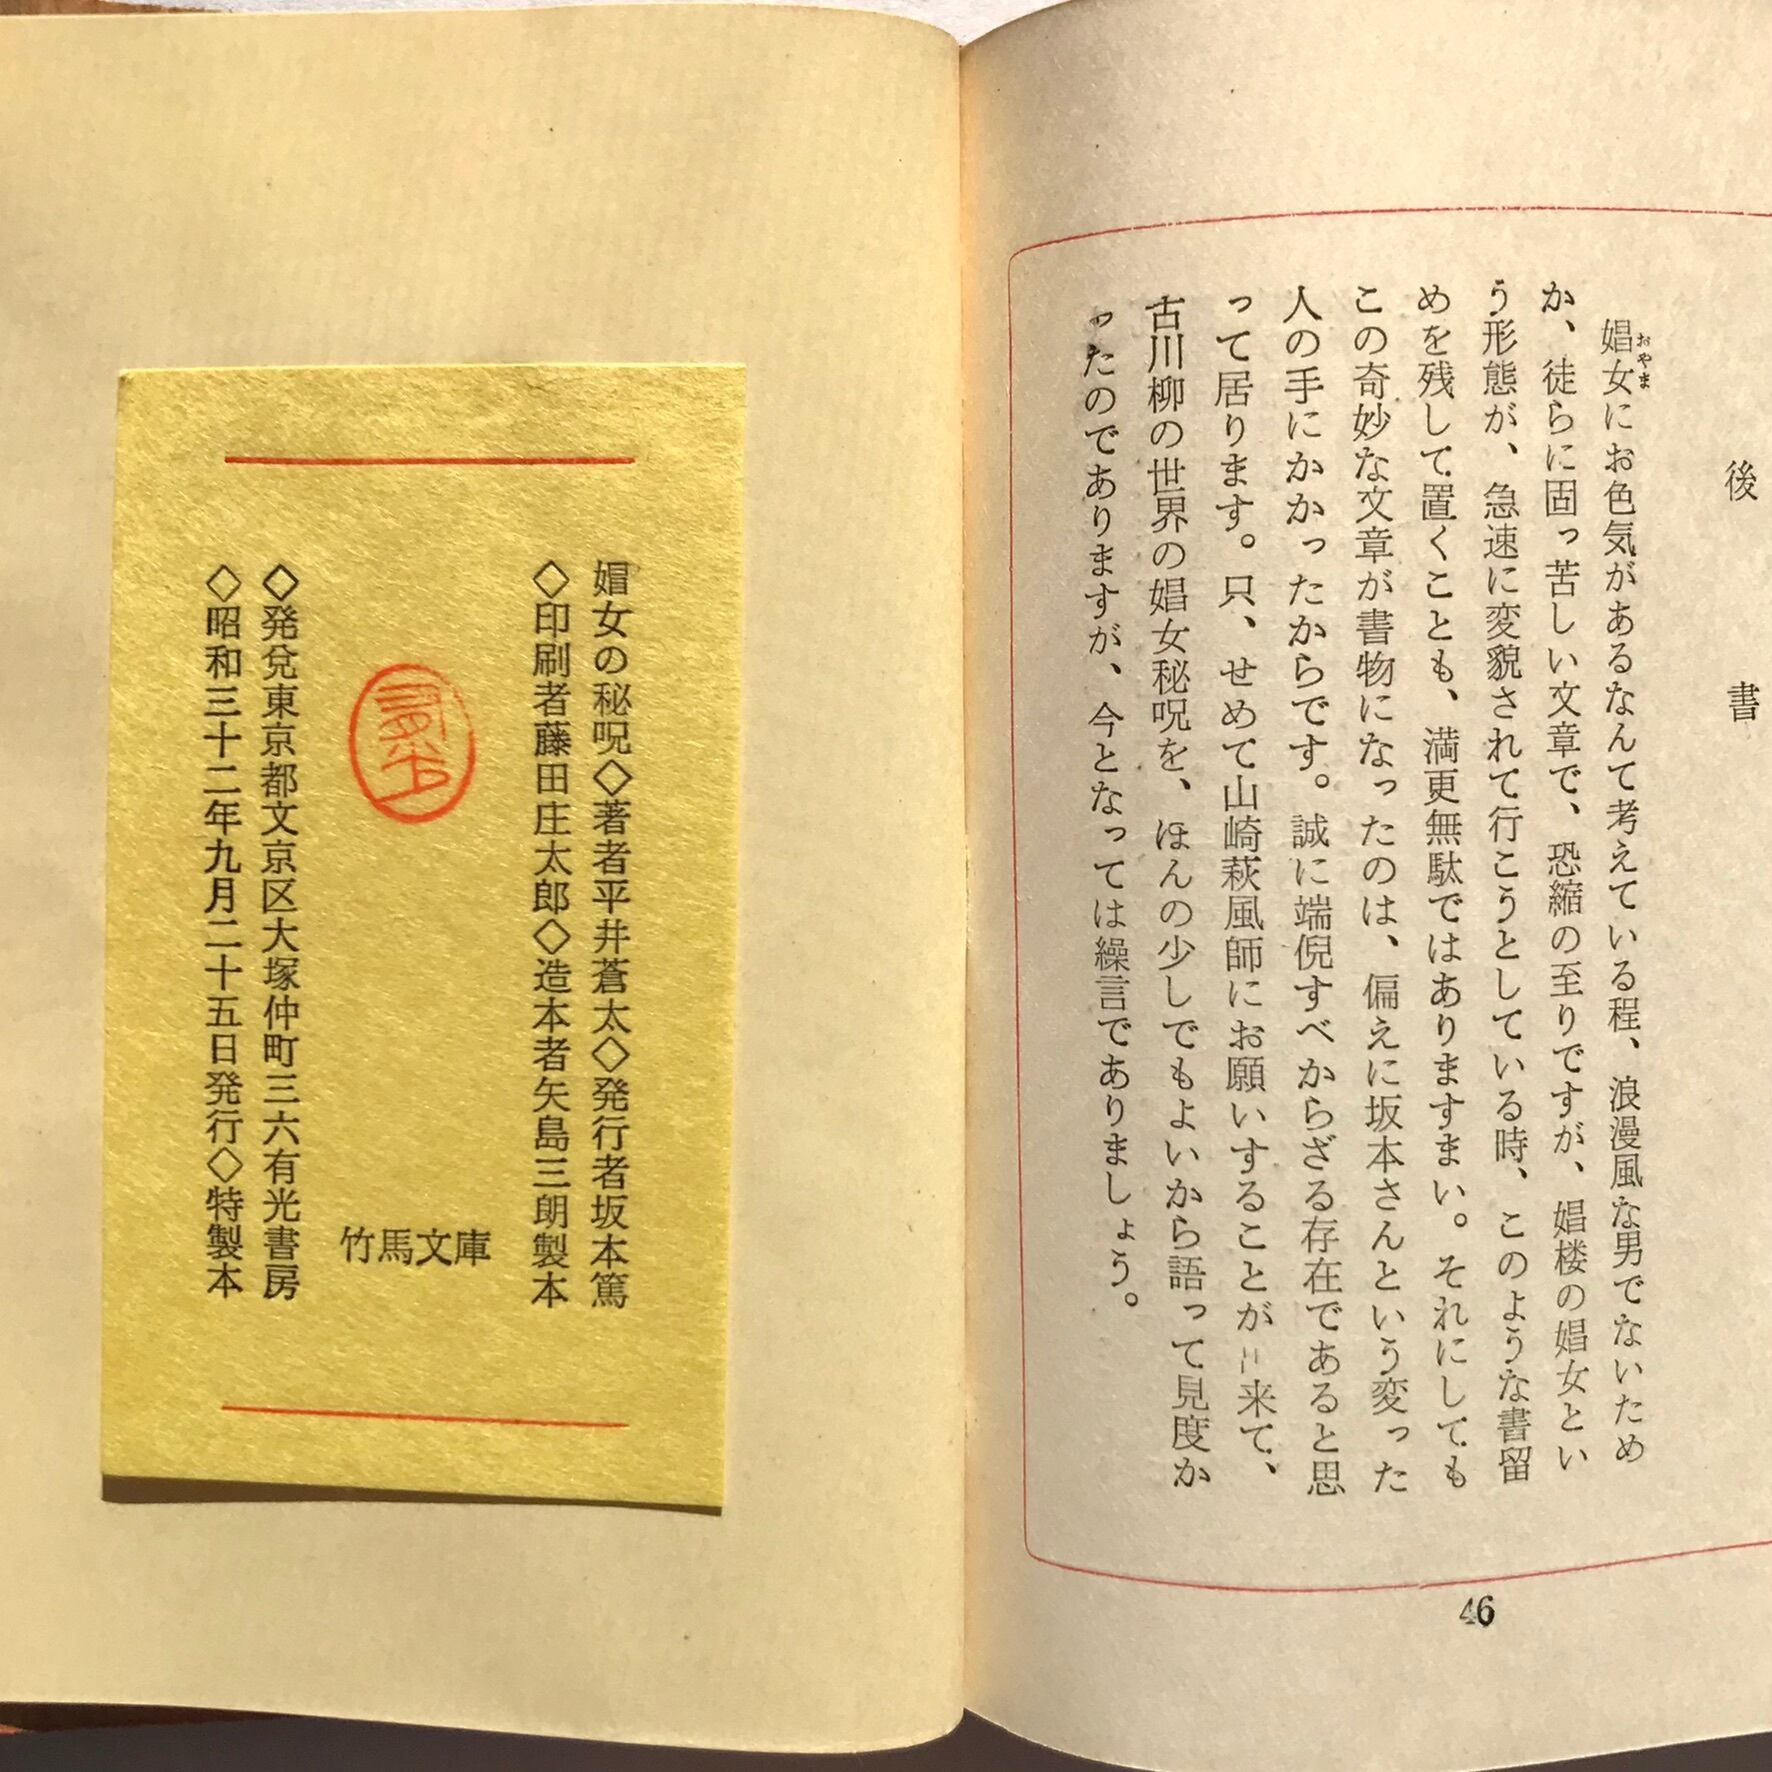 後書
娼女におやまお色気があるなんて考えている程、浪漫風な男でないため
か、徒らに固っ苦しい文章で、恐縮の至りですが、娼楼の娼女とい
う形態が、急速に変貌されて行こうとしている時、このような書留
めを残して置くことも、満更無駄ではありますまい。それにしても
この奇妙な文章が書物になったのは、偏えに坂本さんという変った
人の手にかかったからです。誠に端倪すべからざる存在であると思
って居ります。只、せめて山崎萩風師にお願いすることが出来て、
古川柳の世界の娼女秘呪を、ほんの少しでもよいから語って見度か
ったのでありますが、今となっては繰言でありましょう。
46
娼女の秘呪◇著者平井蒼太◇発行者坂本篤
◇印刷者藤田庄太郎◇造本者矢島三朗製本
竹馬文庫
◇発兌東京都文京区大塚仲町三六有光書房
◇昭和三十二年九月二十五日発行◇特製本